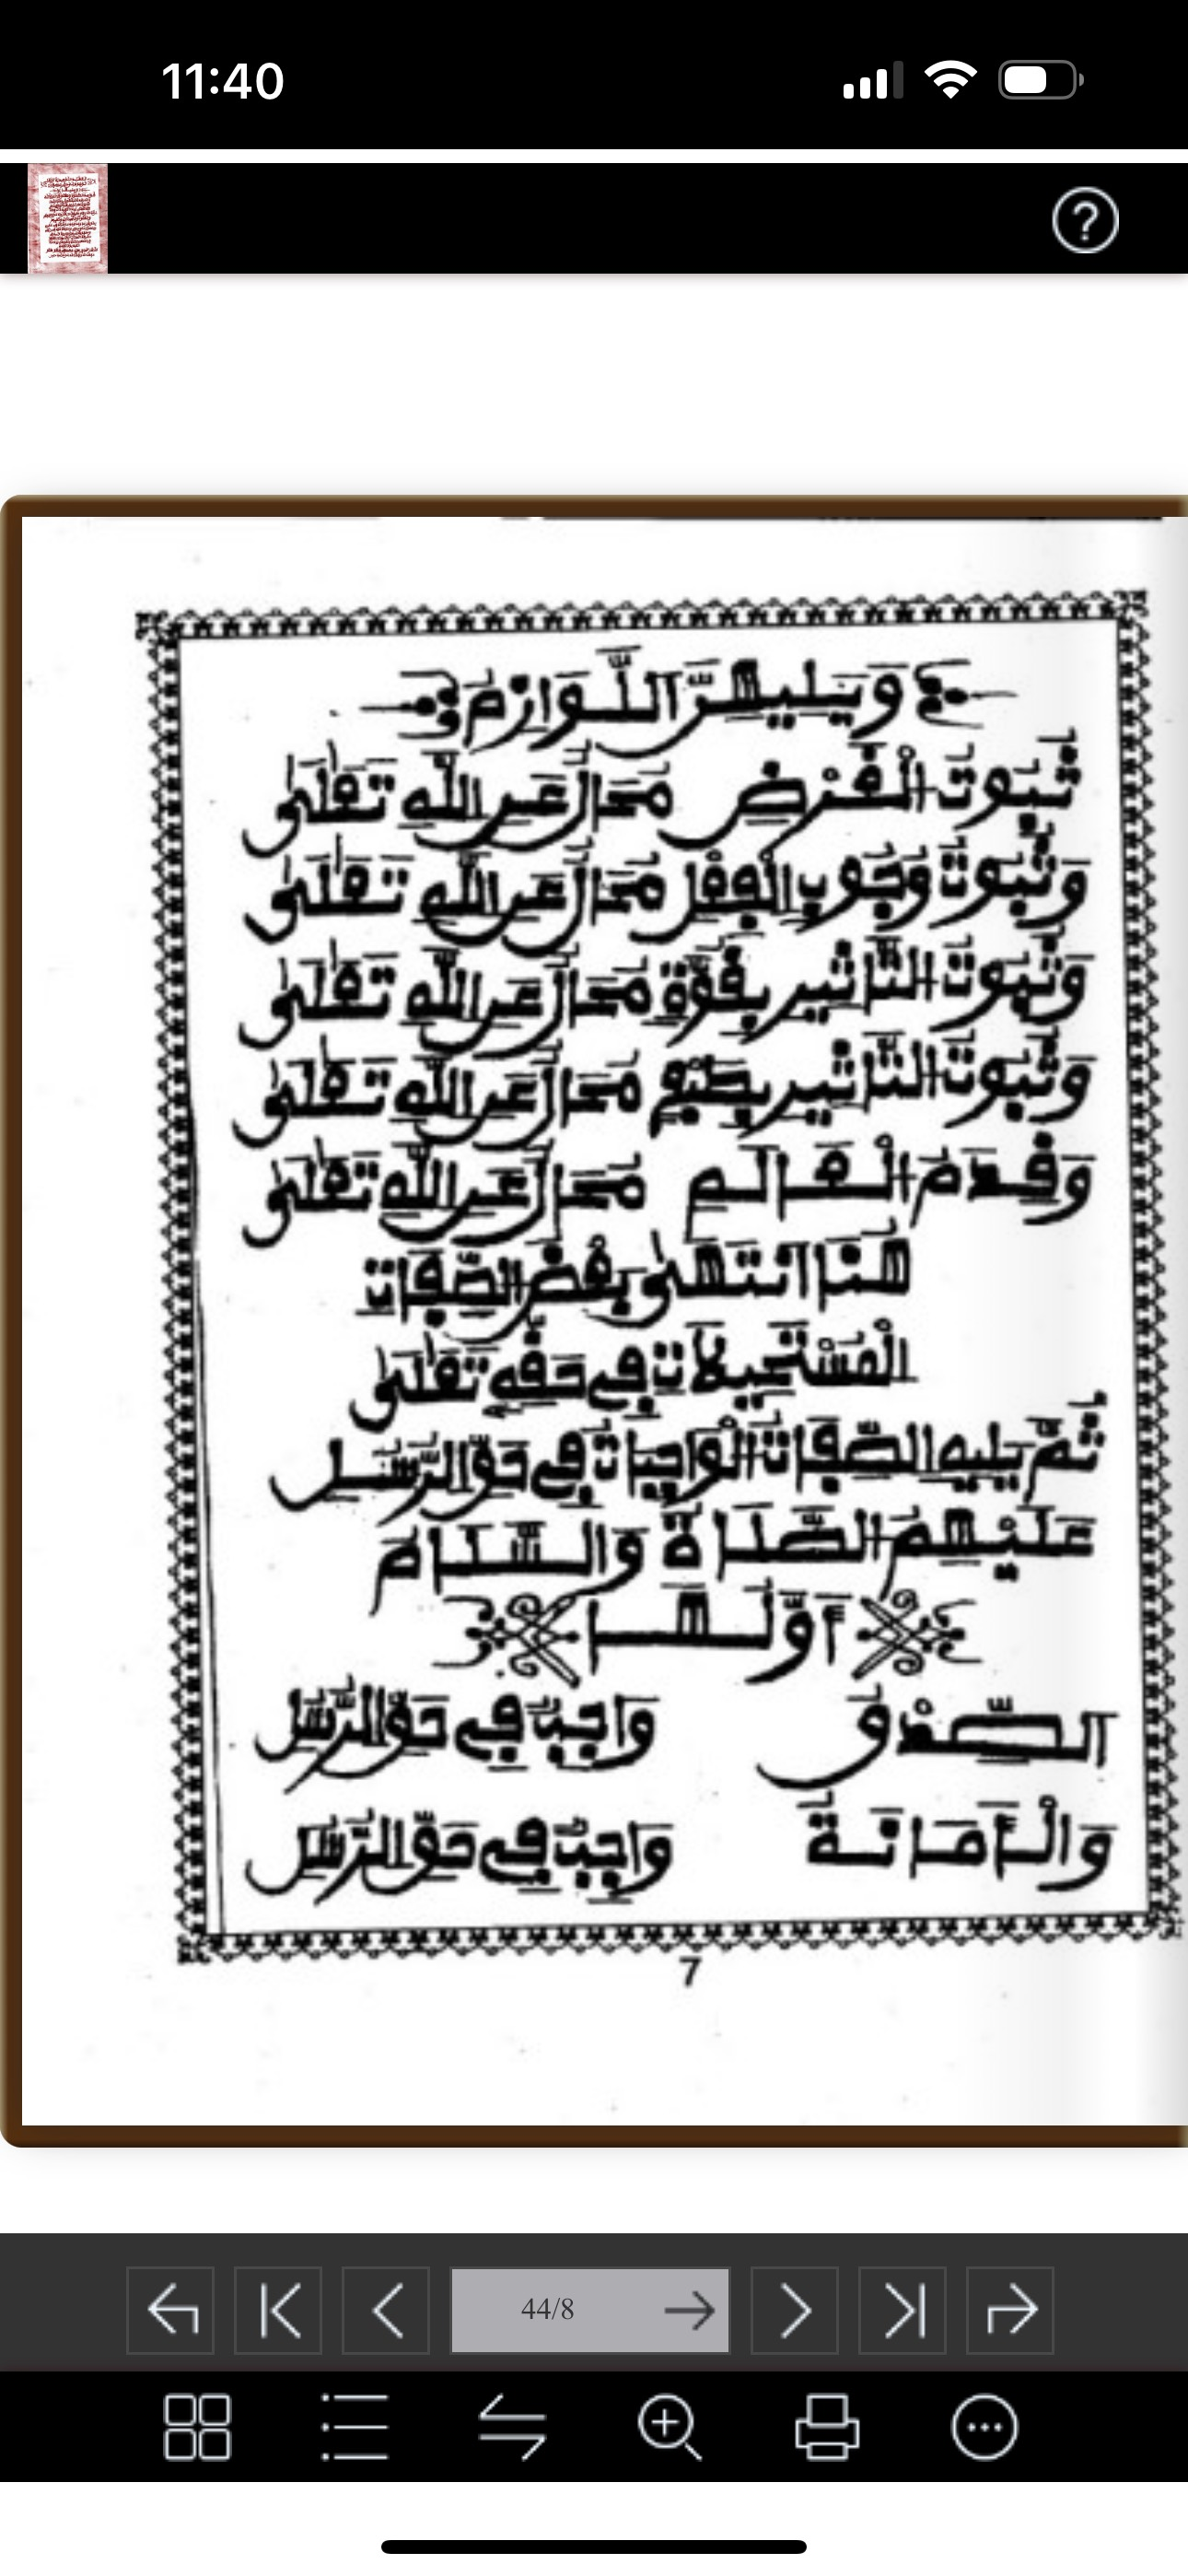 11:40
وَيَلِيهِنَّ اللَّوَازِمُ
ثُبُوتُ الْغَرَضِ مُحَالٌ عَنِ اللَّهِ تَعَلَىٰ
وَثُبُوتُ وُجُوبِ الْفِعْلِ مُحَالٌ عَنِ اللَّهِ تَعَلَىٰ
وَثُبُوتُ التَّأْثِيرِ بِقُوَّةٍ مُحَالٌ عَنِ اللَّهِ تَعَلَىٰ
وَثُبُوتُ التَّأْثِيرِ بِطَبْعٍ مُحَالٌ عَنِ اللَّهِ تَعَلَىٰ
وَقِدَمُ الْعَالَمِ مُحَالٌ عَنِ اللَّهِ تَعَلَىٰ
هُنَا انْتَهَىٰ بَعْضُ الصِّفَاتِ
الْمُسْتَحِيلَاتِ فِي حَقِّهِ تَعَلَىٰ
ثُمَّ يَلِيهِ الصِّفَاتُ الْوَاجِبَاتُ فِي حَقِّ الرُّسُلِ
عَلَيْهِمُ الصَّلَاةُ وَالسَّلَامُ
أَوَّلُهَا
الصِّدْقُ وَاجِبٌ فِي حَقِّ الرُّسُلِ
وَالْأَمَانَةُ وَاجِبٌ فِي حَقِّ الرُّسُلِ
7
44/8